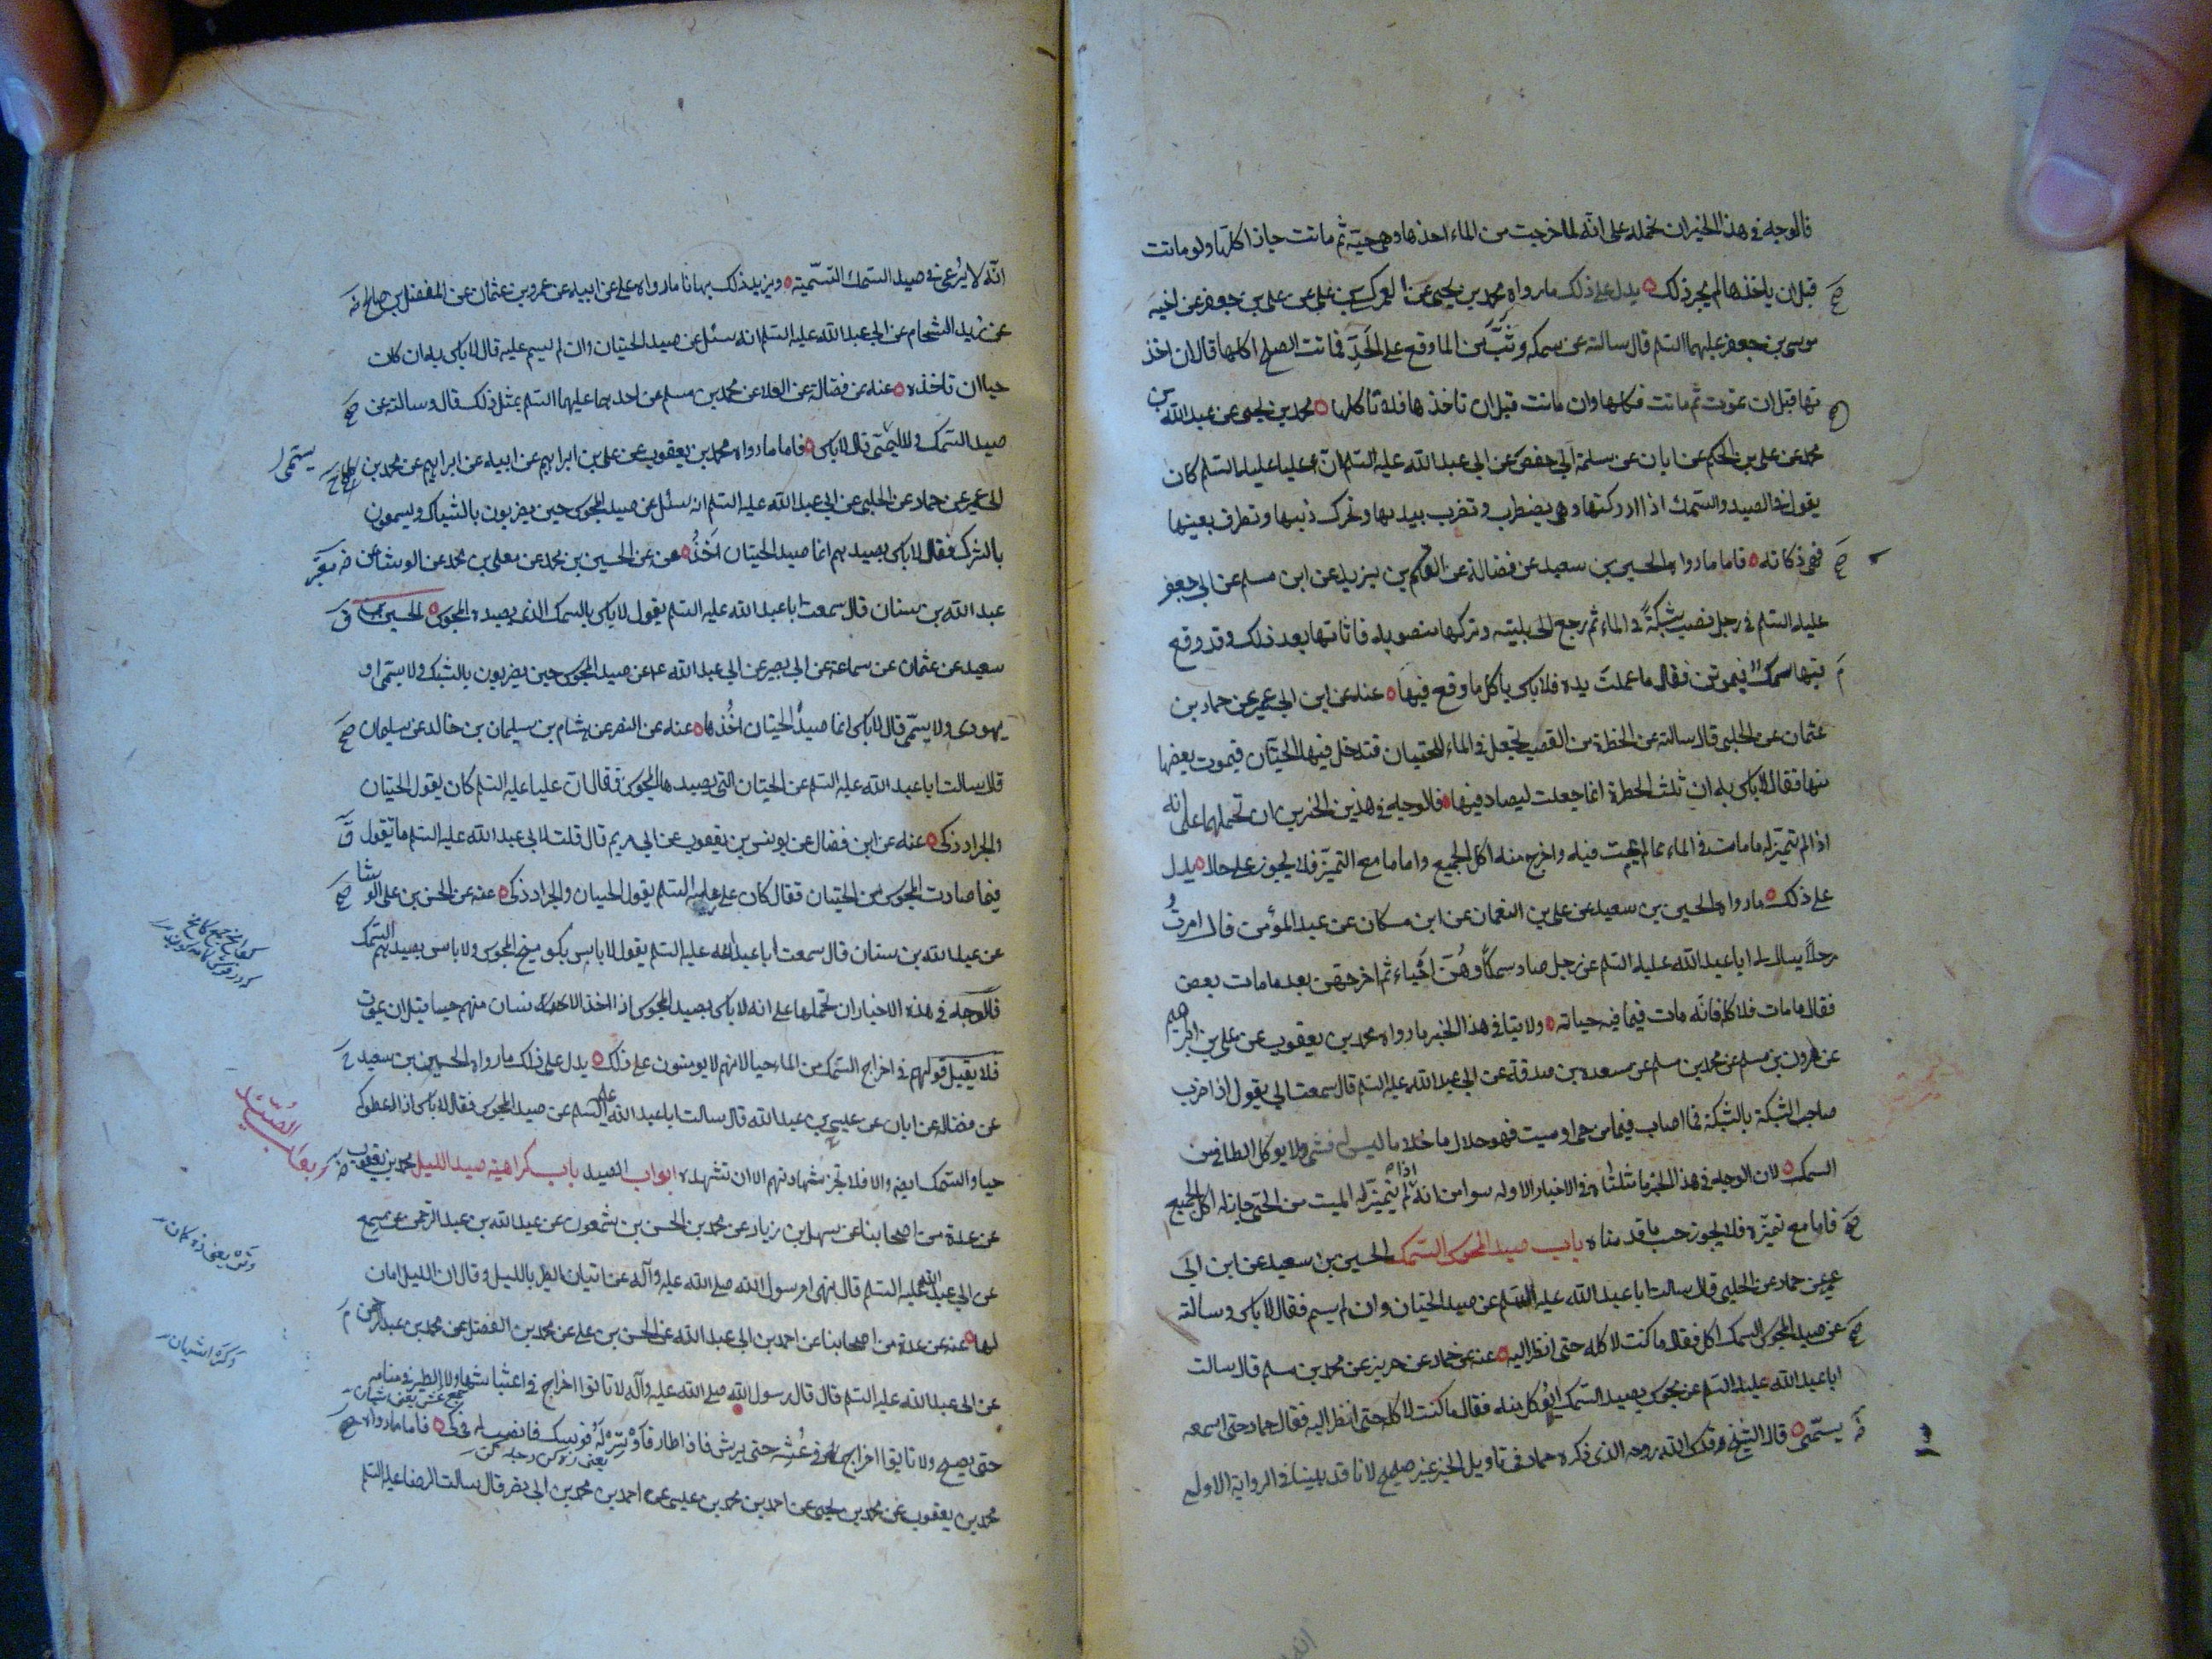 فالوجه في هذا الخبر ان نحمله على انه لما خرجت من الماء اخذها وهي حية ثم ماتت جاز اكلها ولو ماتت
قبل ان ياخذها لم يجز ذلك يدل على ذلك ما رواه محمد بن يحيى عن العمركي بن علي عن علي بن جعفر عن اخيه
موسى بن جعفر عليهما السلم قال سالته عن سمكة وثبت من الماء وقع على الجد فماتت ايصلح اكلها قال ان اخذ
تها قبل ان تموت ثم ماتت فكلها وان ماتت قبل ان تاخذها فلا تاكلها محمد بن يحيى عن عبد الله بن
محمد عن علي بن الحكم عن ابان عن سلمة ابي حفص عن ابي عبد الله عليه السلم ان عليا عليه السلم كان
يقول في الصيد والسمك اذا ادركتها وهي يضطرب وتضرب بيديها وتحرك ذنبها وتطرف بعينها
فهي ذكاته فاما ما رواه الحسين بن سعيد عن فضالة عن القسم بن يزيد عن ابن مسلم عن ابي جعفر
عليه السلم في رجل نصب شبكة في الماء ثم رجع الى بيته وتركها منصوبة فاتاها بعد ذلك وقد وقع
فيها سمك فيموتن فقال ما عملت يده فلا باس باكل ما وقع فيها عنه عن ابن ابي عمير عن حماد بن
عثمان عن الحلبي قال سالته عن الحظرة من القصب يجعل في الماء للحيتان فتدخل فيها الحيتان فيموت بعضها
فيها فقال لا باس به ان تلك الحظرة انما جعلت ليصاد فيها فالوجه في هذين الخبرين ان نحملهما على انه
اذا لم يتميز له ما مات في الماء مما لم يمت فيه واخرج منه اكل الجميع واما مع التميز فلا يجوز على حال يدل
على ذلك ما رواه الحسين بن سعيد عن علي بن النعمان عن ابن مسكان عن عبد المؤمن قال امرت
رجلا يسال لي ابا عبد الله عليه السلم عن رجل صاد سمكا وهن احياء ثم اخرجهن بعد ما مات بعض
فقال ما مات فلا تاكله فانه مات فيما فيه حياته ولا ينافي هذا الخبر ما رواه محمد بن يعقوب عن علي بن ابرهيم
عن هرون بن مسلم عن محمد بن مسلم عن مسعدة بن صدقة عن ابي عبد الله عليه السلم قال سمعت ابي يقول اذا ضرب
صاحب الشبكة بالشبكة فما اصاب فيها من حي او ميت فهو حلال ما خلا ما ليس له قشر ولا يوكل الطافي من
السمك لان الوجه في هذا الخبر ما قلناه في الاخبار الاولة سوا من انه اذا لم يتميز له الميت من الحي جاز له اكل الجميع
فاما مع تميزه فلا يجوز حسب ما قدمناه باب صيد المجوس السمك الحسين بن سعيد عن ابن ابي
عمير عن حماد عن الحلبي قال سالت ابا عبد الله عليه السلم عن صيد الحيتان وان لم يسم فقال لا باس وسالته
عن صيد المجوس السمك اكل فقال ما كنت لاكله حتى انظر اليه عنه عن حماد عن حريز عن محمد بن مسلم قال سالت
ابا عبد الله عليه السلم عن مجوسي يصيد السمك ايؤكل منه فقال ما كنت لاكله حتى انظر اليه فقال حماد حتى اسمعه
يسمي قال الشيخ قدس الله روحه الذي ذكره حماد في تاويل الخبر غير صحيح لانا قد بينا في الرواية الاولى
انه لا يراعى في صيد السمك التسمية ويزيد ذلك بيانا ما رواه علي عن ابيه عن عمرو بن عثمان عن المفضل بن صالح
عن زيد الشحام عن ابي عبد الله عليه السلم انه سئل عن صيد الحيتان وان لم يسم عليه قال لا باس به ان كان
حيا ان تاخذه عنه عن فضالة عن العلا عن محمد بن مسلم عن احدهما عليهما السلم بمثل ذلك قال وسالته عن
صيد السمك ولا يسمي قال لا باس فاما ما رواه محمد بن يعقوب عن علي بن ابراهيم عن ابيه عن ابراهيم عن محمد بن
ابي عمير عن حماد عن الحلبي عن ابي عبد الله عليه السلم انه سئل عن صيد المجوس حين يضربون بالشباك ويسمون
بالشرك فقال لا باس بصيدهم انما صيد الحيتان اخذه عنه عن الحسين بن محمد عن معلى بن محمد عن الوشا عن
عبد الله بن سنان قال سمعت ابا عبد الله عليه السلم يقول لا باس بالسمك الذي يصيده المجوس الحسين بن
سعيد عن عثمان عن سماعة عن ابي بصير عن ابي عبد الله ع عن صيد المجوس حين يضربون بالشبك ولا يسمى او
يهودي ولا يسمي قال لا باس انما صيد الحيتان اخذها عنه عن النضر عن هشام بن سليمان بن خالد عن سليمان
قال سالت ابا عبد الله عليه السلم عن الحيتان التي يصيدها المجوس فقال ان عليا عليه السلم كان يقول الحيتان
والجراد ذكي عنه عن ابن فضال عن يونس بن يعقوب عن ابي مريم قال قلت لابي عبد الله عليه السلم ما تقول
فيما صادت المجوس من الحيتان فقال كان علي عليه السلم يقول الحيتان والجراد ذكي عنه عن الحسن بن علي الوشا
عن عبد الله بن سنان قال سمعت ابا عبد الله عليه السلم يقول لا باس بكواميخ المجوس ولا باس بصيدهم السمك
فالوجه في هذه الاخبار ان نحملها على انه لا باس بصيد المجوس اذا اخذ الانسان منهم حيا قبل ان يموت
فلا يقبل قولهم في اخراج السمك من الماء حيا لانهم لا يومنون على ذلك يدل على ذلك ما رواه الحسين بن سعيد
عن فضالة عن ابان عن عيسى بن عبد الله قال سالت ابا عبد الله عليه السلم عن صيد المجوس فقال لا باس اذا اعطوك
حيا والسمك ايضا والا فلا تجز شهادتهم الا ان تشهده ابواب الصيد باب كراهية صيد الليل محمد بن يعقوب
عن عدة من اصحابنا عن سهل بن زياد عن محمد بن الحسن بن شمعون عن عبد الله بن عبد الرحمن عن مسمع
عن ابي عبد الله عليه السلم قال نهى رسول الله صلى الله عليه وآله عن اتيان الطير بالليل وقال ان الليل امان
لها عنه عن عدة من اصحابنا عن احمد بن ابي عبد الله عن الحسن بن علي عن محمد بن الفضل عن محمد بن عبد الرحمن
عن ابي عبد الله عليه السلم قال قال رسول الله صلى الله عليه وآله لا تاتوا الفراخ في اعشاشها ولا الطير في منامه
حتى يصبح ولا تاتوا الفراخ في عشه حتى يريش فاذا طار فاوتر له قوسك فانصب له فخك فاما ما رواه
محمد بن يعقوب عن محمد بن يحيى عن احمد بن محمد بن عيسى عن احمد بن محمد بن ابي نصر قال سالت الرضا عليه السلم